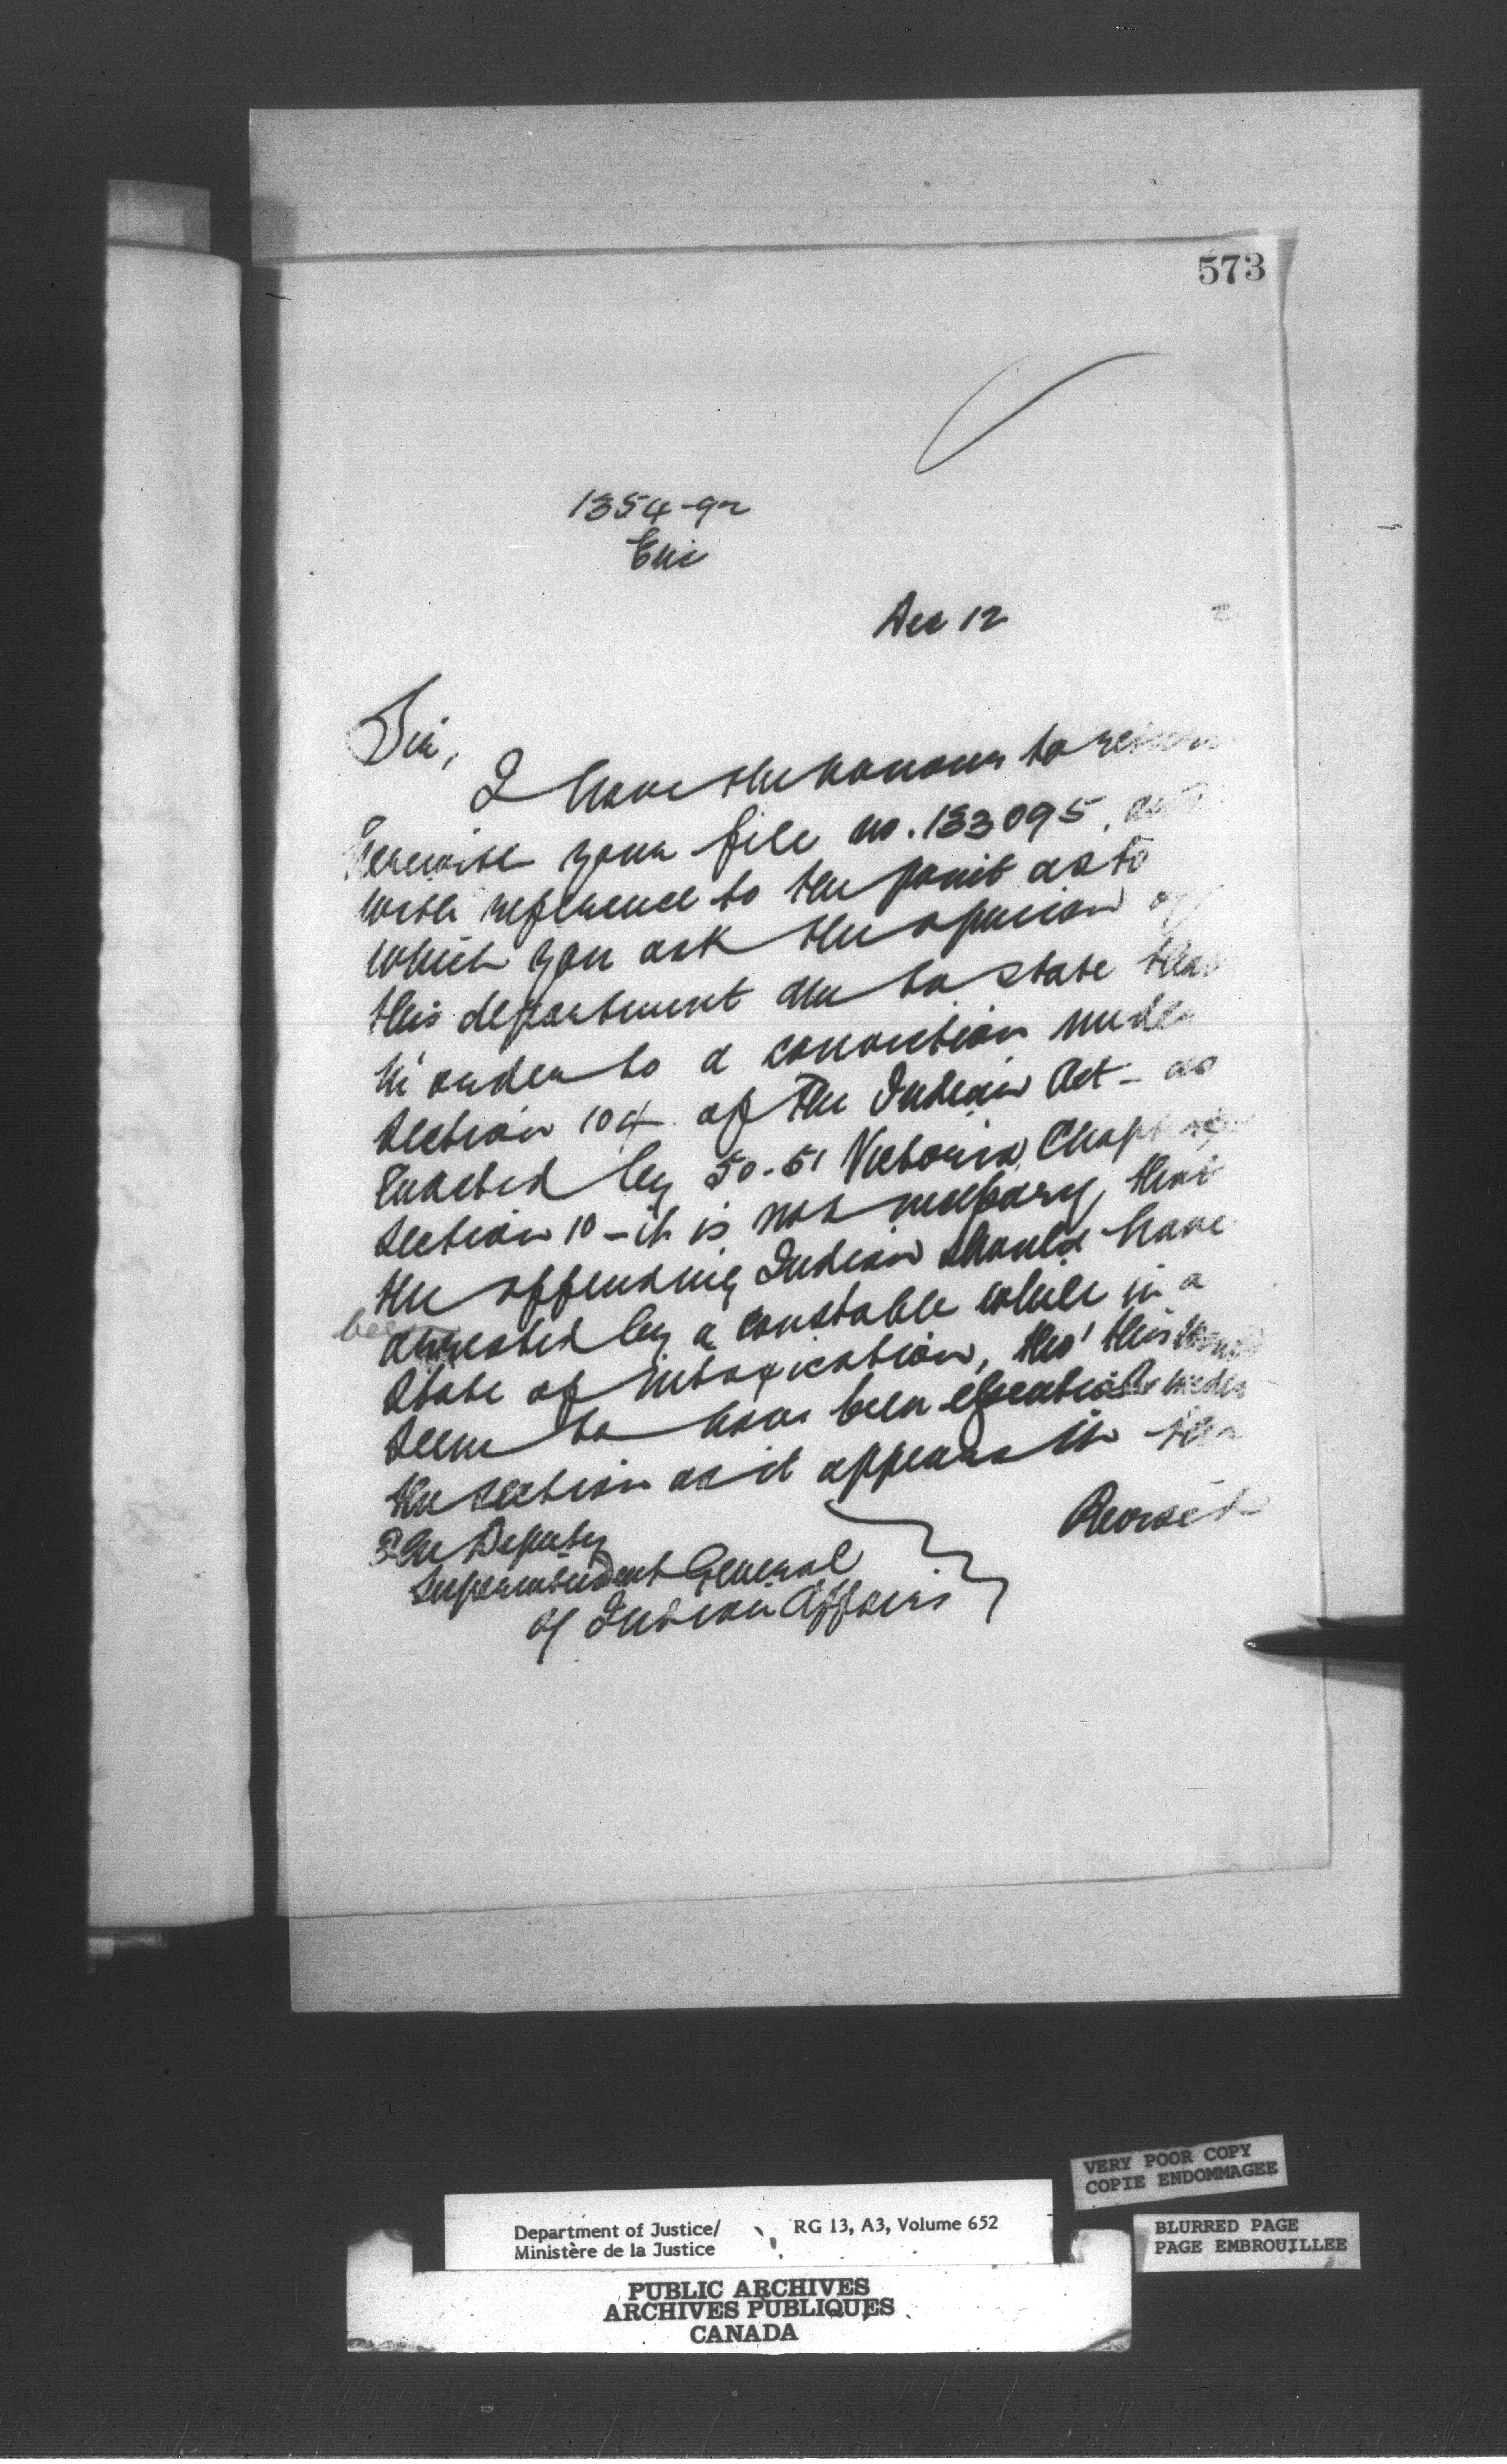 573
1354-92
Enc
Dec 12 2
Sir,
I have the honour to return
herewith your file no. 133095, and
with reference to the point as to
which you ask the opinion of
this department am to state that
in order to a conviction under
section 104 of the Indian Act - as
enacted by 50-51 Victoria, Chapter
section 10 - it is not necessary, that
the offending Indian should have
been
arrested by a constable while in a
state of intoxication, tho' this would
seem to have been essential under
the section as it appears in the
Revised
The Deputy
Superintendent General
of Indian Affairs
VERY POOR COPY
COPIE ENDOMMAGEE
BLURRED PAGE
PAGE EMBROUILLEE
Department of Justice/ RG 13, A3, Volume 652
Ministère de la Justice
PUBLIC ARCHIVES
ARCHIVES PUBLIQUES
CANADA